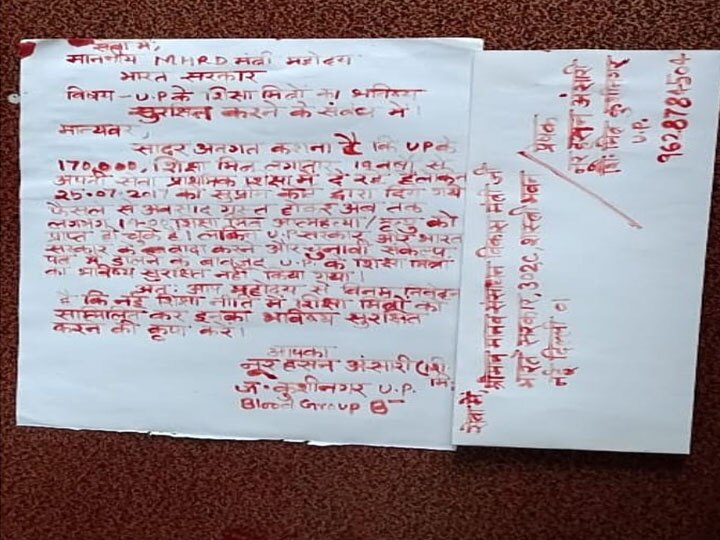 सेवा में,
माननीय MHRD मंत्री महोदय
भारत सरकार
विषय - U.P के शिक्षा मित्रों का भविष्य
सुरक्षित करने के संबंध में।
मान्यवर,
सादर अवगत कराना है कि UP के
170,000, शिक्षा मित्र लगातार 19 वर्षों से
अपनी सेवा प्राथमिक शिक्षा में दे रहे
25.07.2017 को सुप्रीम कोर्ट द्वारा दिये गये
फैसले से अवसाद ग्रस्त होकर अब तक
लगभग शिक्षा मित्र आत्महत्या/मृत्यु को
प्राप्त हो चुके हैं। लेकिन U.P सरकार और भारत
सरकार के वादा करने और चुनावी संकल्प
पत्र में डालने के बावजूद U.P के शिक्षा मित्रों
का भविष्य सुरक्षित नहीं किया गया।
अतः आप महोदय से विनम्र निवेदन
है कि नई शिक्षा नीति में शिक्षा मित्रों को
सम्मिलित कर इनका भविष्य सुरक्षित
करने की कृपा करें।
आपका
नूर हसन अंसारी (शि.
मि.
ज. कुशीनगर U.P.
Blood Group B-
सेवा में,
श्रीमान मानव संसाधन विकास मंत्री जी
भारत सरकार, 302C शास्त्री भवन
नई दिल्ली
प्रेषक
नूर हसन अंसारी
शि. मित्र कुशीनगर
U.P.
9628784504